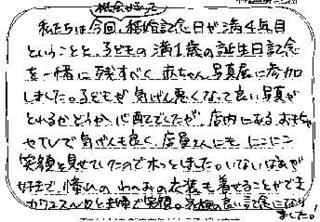 機会があって
私たちは今回、結婚記念日が満4年目
ということと、子どもの満1歳の誕生日記念
を一緒に残すべく赤ちゃん写真展に参加
しました。子どもが気げん悪くなって良い写真が
とれるかどうか、心配でしたが、店内にあるおもちゃ
やTVで気げんも良く、店員さんにもにこにこ
笑顔を見せていたのでホッとしました。いないいないばあが
好きで、帰りの
の衣装も着せることができ
夫婦で笑顔。
良い記念になり
ました。!